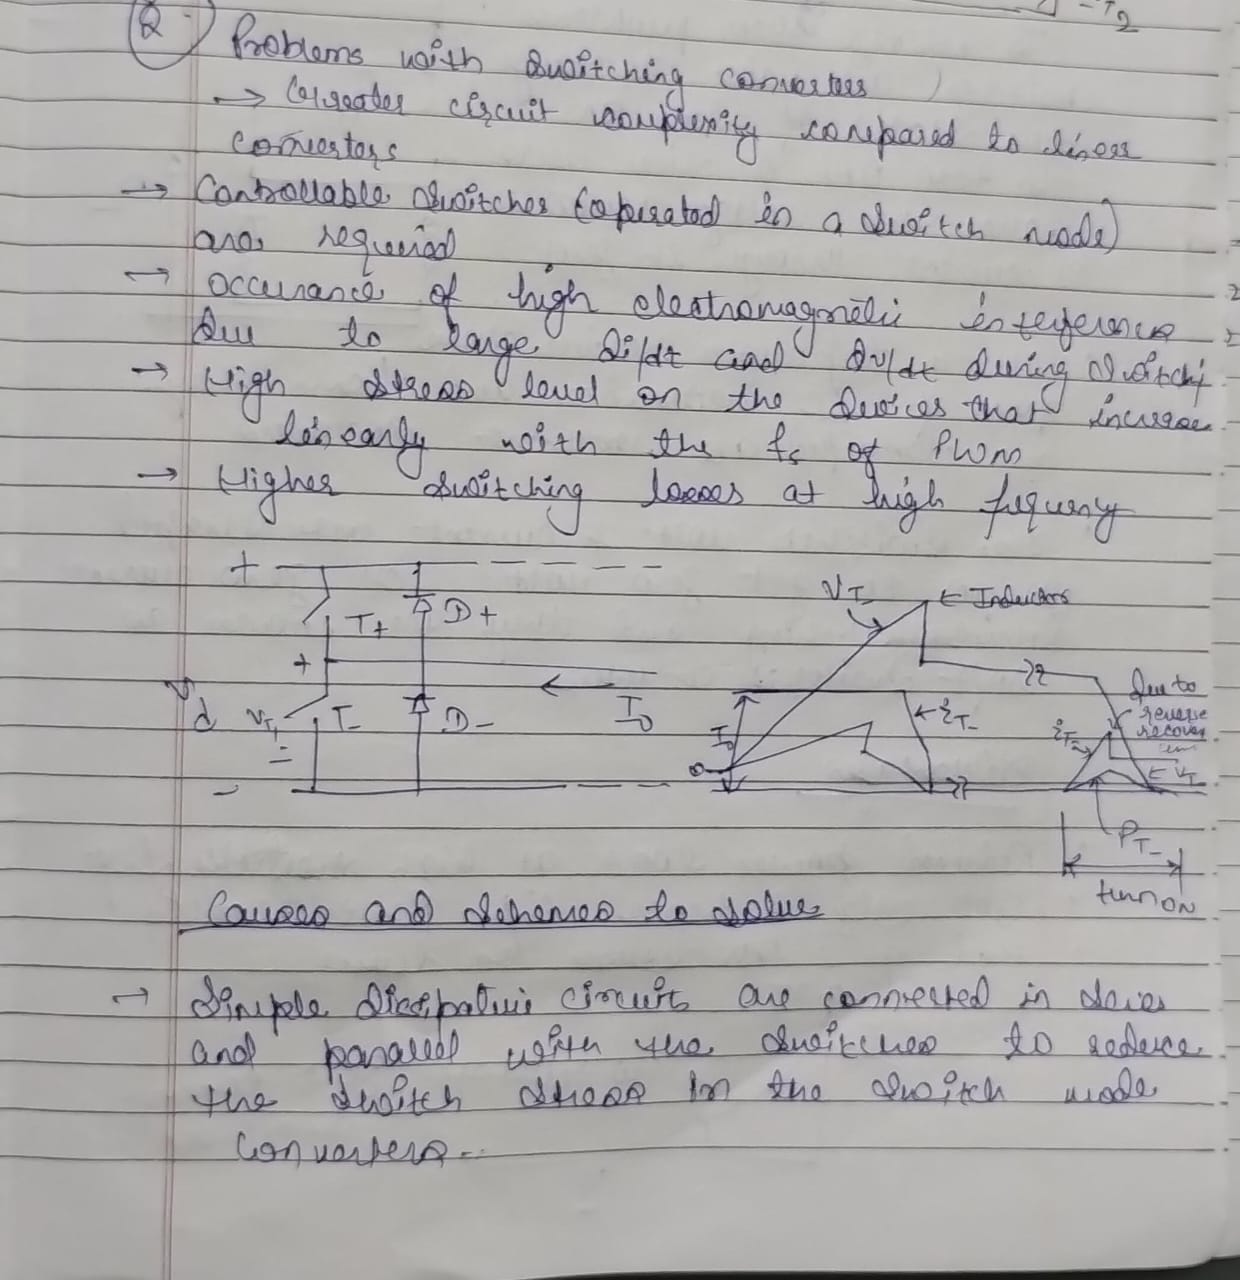 -T2
Q.) Problems with Switching converters
→ Greater circuit complexity compared to linear
converters
→ Controllable Switches (operated in a Switch mode)
are required
→ Occurance of high electromagnetic interference
due to large di/dt and dv/dt during Switchi
→ High stress level on the devices that increase
linearly with the fs of PWM
→ Higher Switching losses at high frequency
+
T+
D+
+
Vd
VT-
T-
D-
I0
-
VT-
← Inductors
I0
← iT-
0
Due to
reverse
recover
iT-
← VT
PT-
turn ON
Causes and Schemes to Solve
→ Simple Dissipative circuits are connected in Series
and parallel with the Switches to reduce
the Switch stress in the Switch mode
Converters..